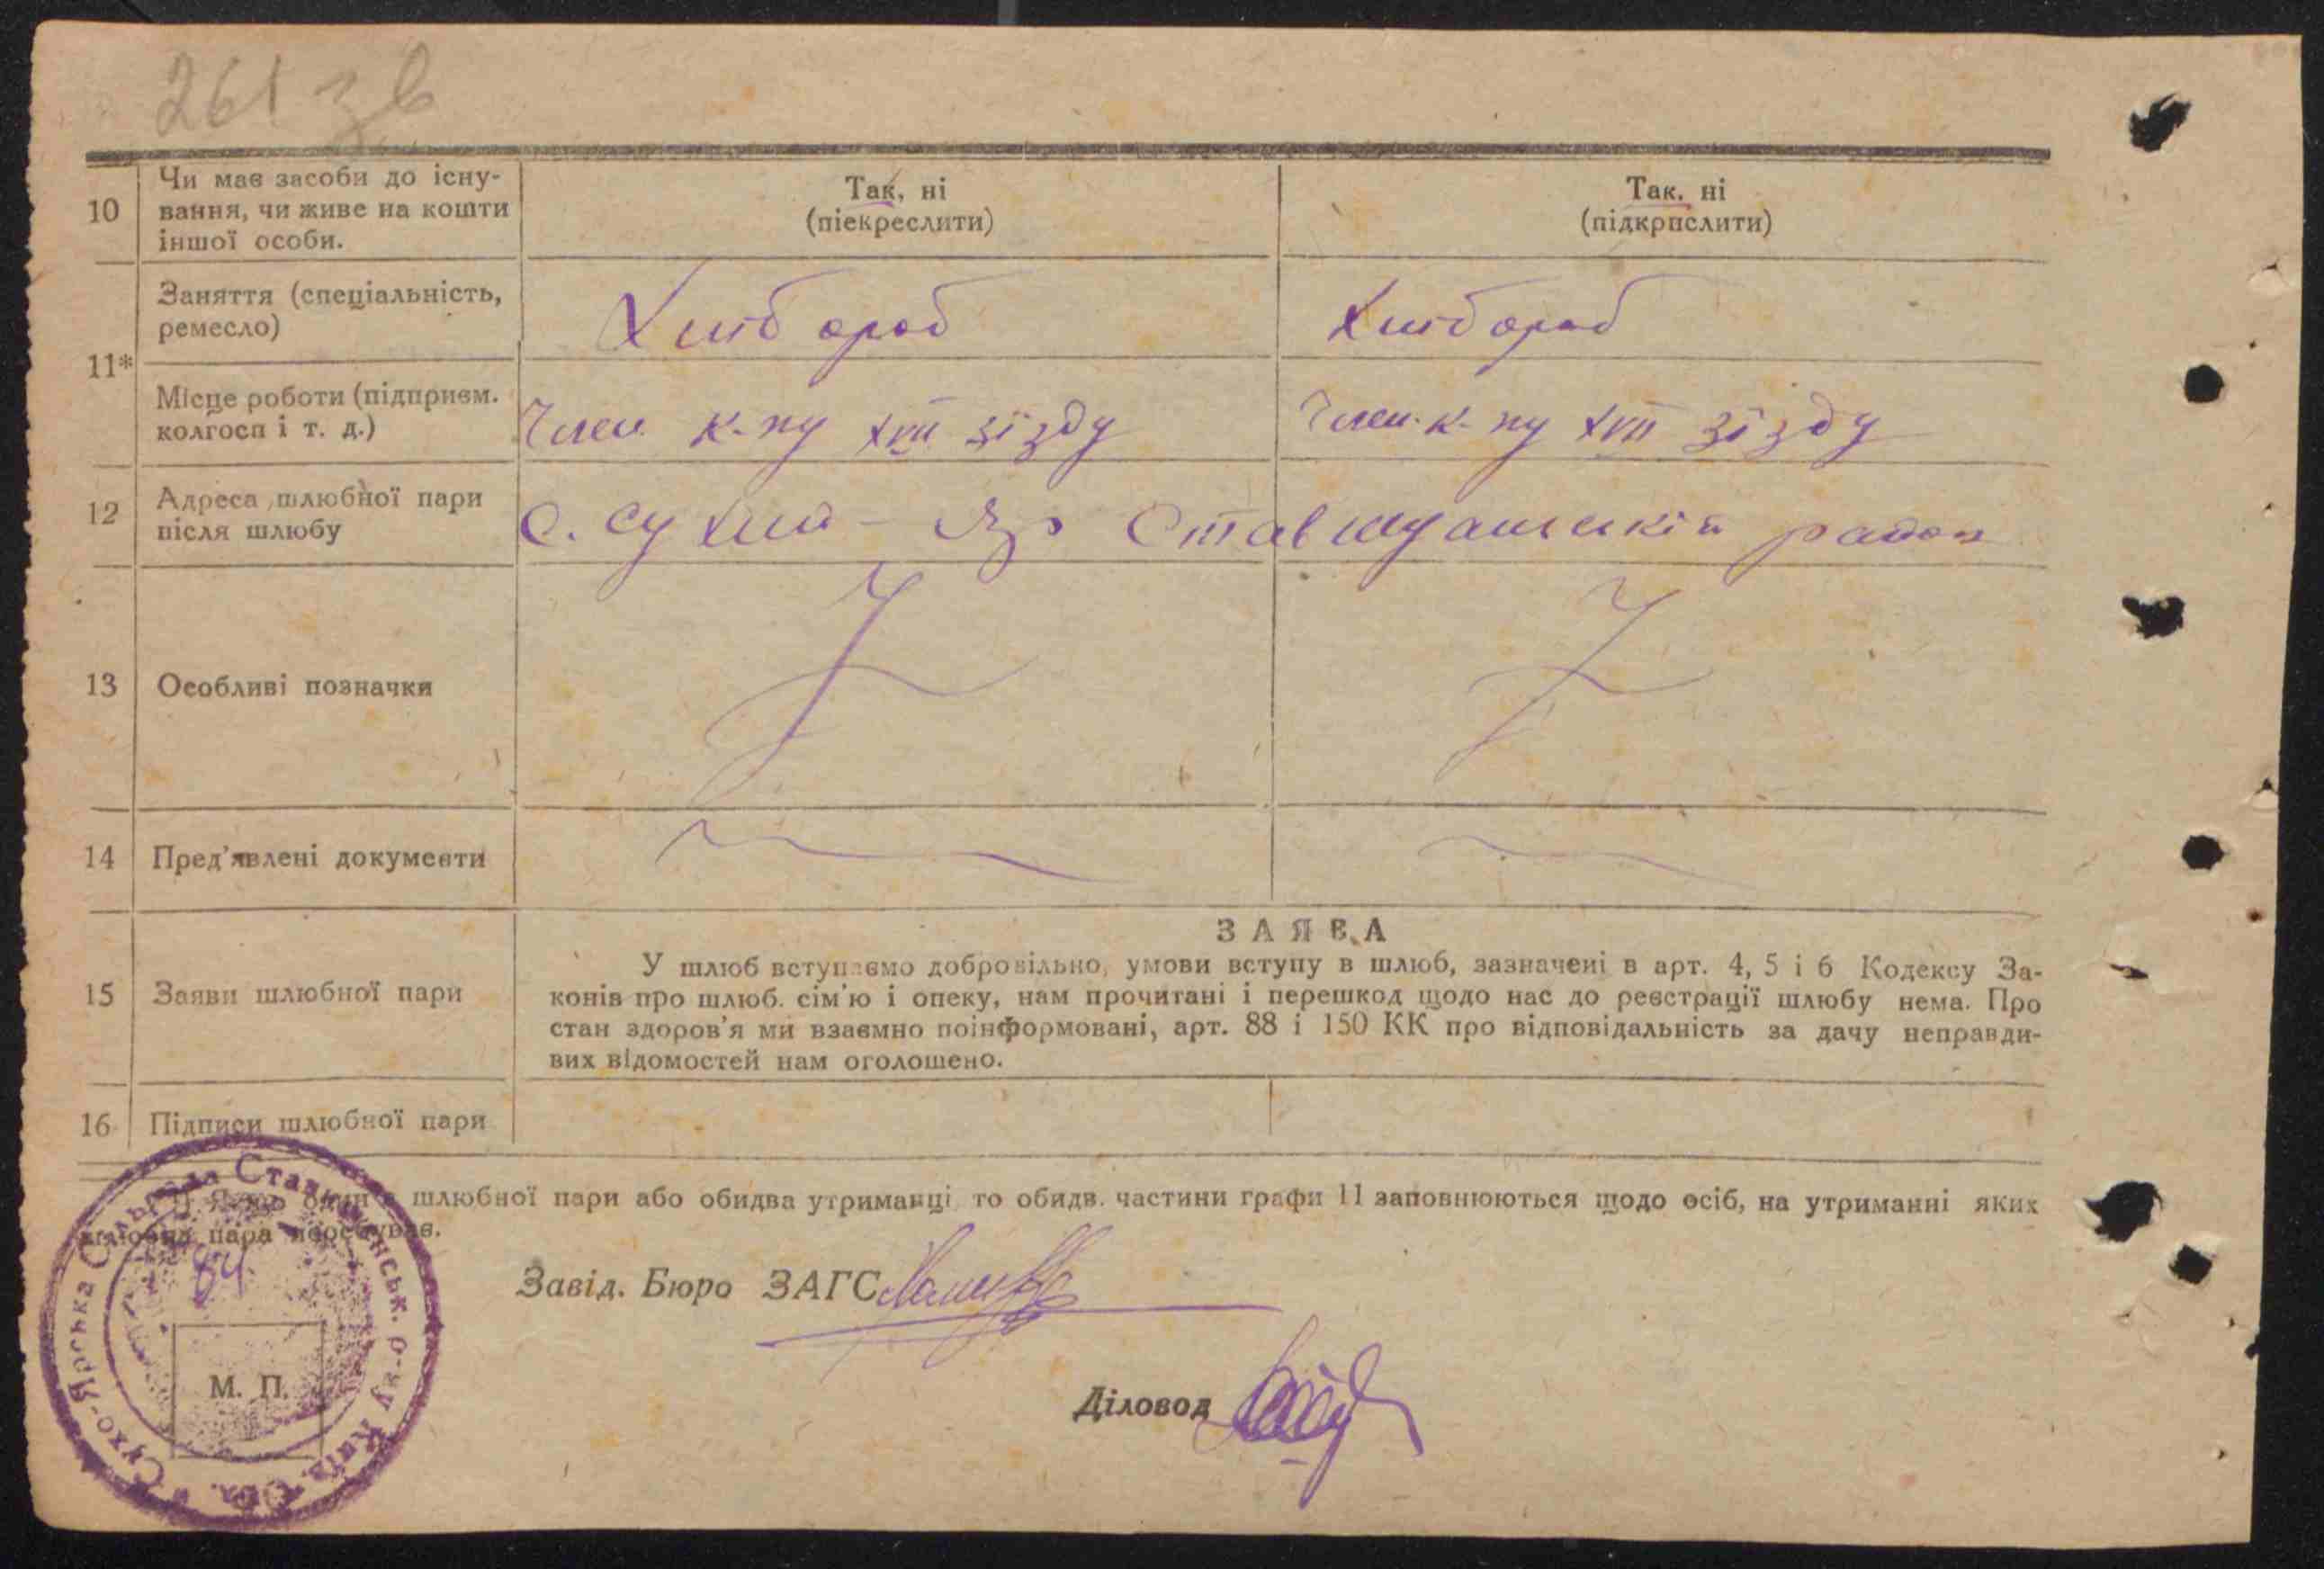 261 зв
10
Чи має засоби до існу-
вання, чи живе на кошти
іншої особи.
Так, ні
(піекреслити)
Так, ні
(підкрислити)
11*
Заняття (спеціальність,
ремесло)
Хлібороб
Хлібороб
Місце роботи (підприєм.
колгосп і т. д.)
Член к-пу XVII зїзду
Член к-пу XVII зїзду
12
Адреса шлюбної пари
після шлюбу
с. Сухий-Яр Ставищанський район
13
Особливі позначки
14
Пред'явлені документи
15
Заяви шлюбної пари
ЗАЯВА
У шлюб вступаємо добровільно, умови вступу в шлюб, зазначені в арт. 4, 5 і 6 Кодексу За-
конів про шлюб. сім'ю і опеку, нам прочитані і перешкод щодо нас до реєстрації шлюбу нема. Про
стан здоров'я ми взаємно поінформовані, арт. 88 і 150 КК про відповідальність за дачу неправди-
вих відомостей нам оголошено.
16
Підписи шлюбної пари
Якщо один з шлюбної пари або обидва утриманці то обидв. частини графи 11 заповнюються щодо осіб, на утриманні яких
шлюбна пара перебував.
Завід. Бюро ЗАГС
Діловод
М. П.
Сухо-Ярська Сільрада Ставищенськ. р-ну Київ. Обл.